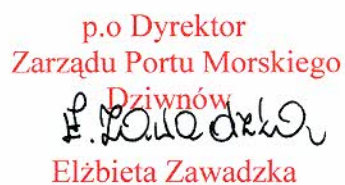 p.o Dyrektor
Zarządu Portu Morskiego
Dziwnów
E. Zawadzka
Elżbieta Zawadzka